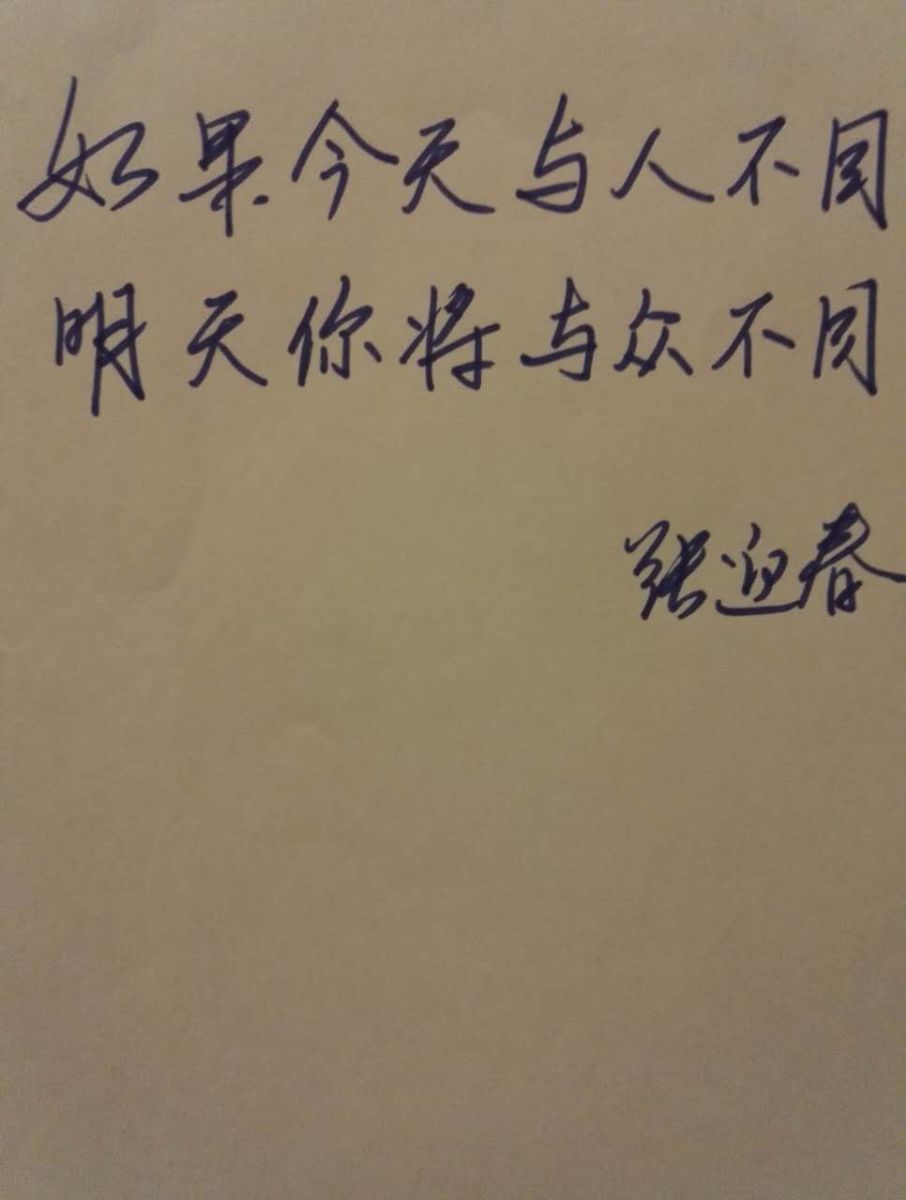 如果今天与人不同
明天你将与众不同
张迎春